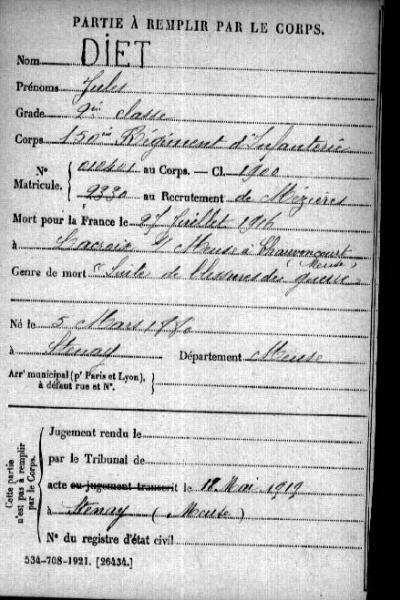 PARTIE À REMPLIR PAR LE CORPS.
Nom DIET
Prénoms Jules
Grade 2me classe
Corps 150me Régiment d'Infanterie
N° Matricule. { 010401 au Corps. — Cl. 1900
2330 au Recrutement de Mézières
Mort pour la France le 27 Juillet 1916
à Lacroix s/ Meuse à Chauvoncourt
(Meuse)
Genre de mort Suite de blessures de guerre
Né le 5 Mars
à Stenay Département Meuse
Arrt municipal (pr Paris et Lyon), à défaut rue et N°. }
Cette partie n'est pas à remplir par le Corps.
Jugement rendu le
par le Tribunal de
acte ou jugement transcrit le 18 Mai 1919
à Stenay (Meuse)
N° du registre d'état civil
534-708-1921. [26434.]